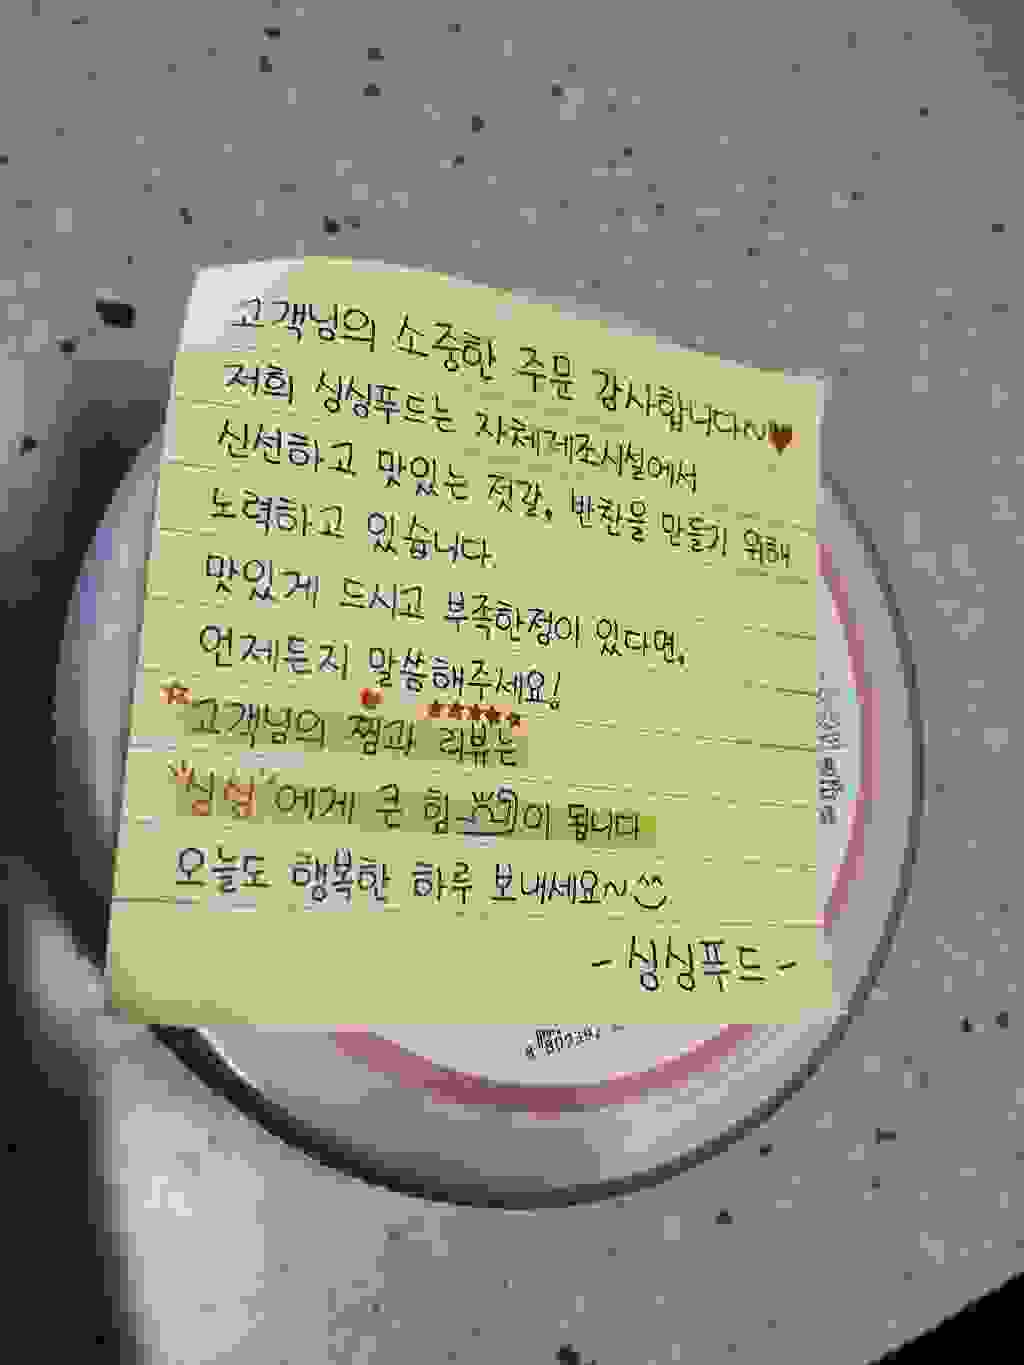 고객님의 소중한 주문 감사합니다~♥
저희 싱싱푸드는 자체제조시설에서
신선하고 맛있는 젓갈, 반찬을 만들기 위해
노력하고 있습니다.
맛있게 드시고 부족한점이 있다면,
언제든지 말씀해주세요!
☆고객님의 찜과 리뷰는
싱싱에게 큰 힘이 됩니다
오늘도 행복한 하루 보내세요~^^
- 싱싱푸드 -